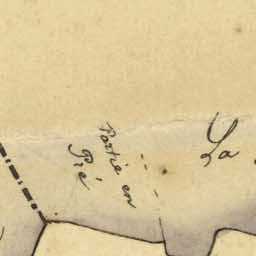 Partie en
Pré
La